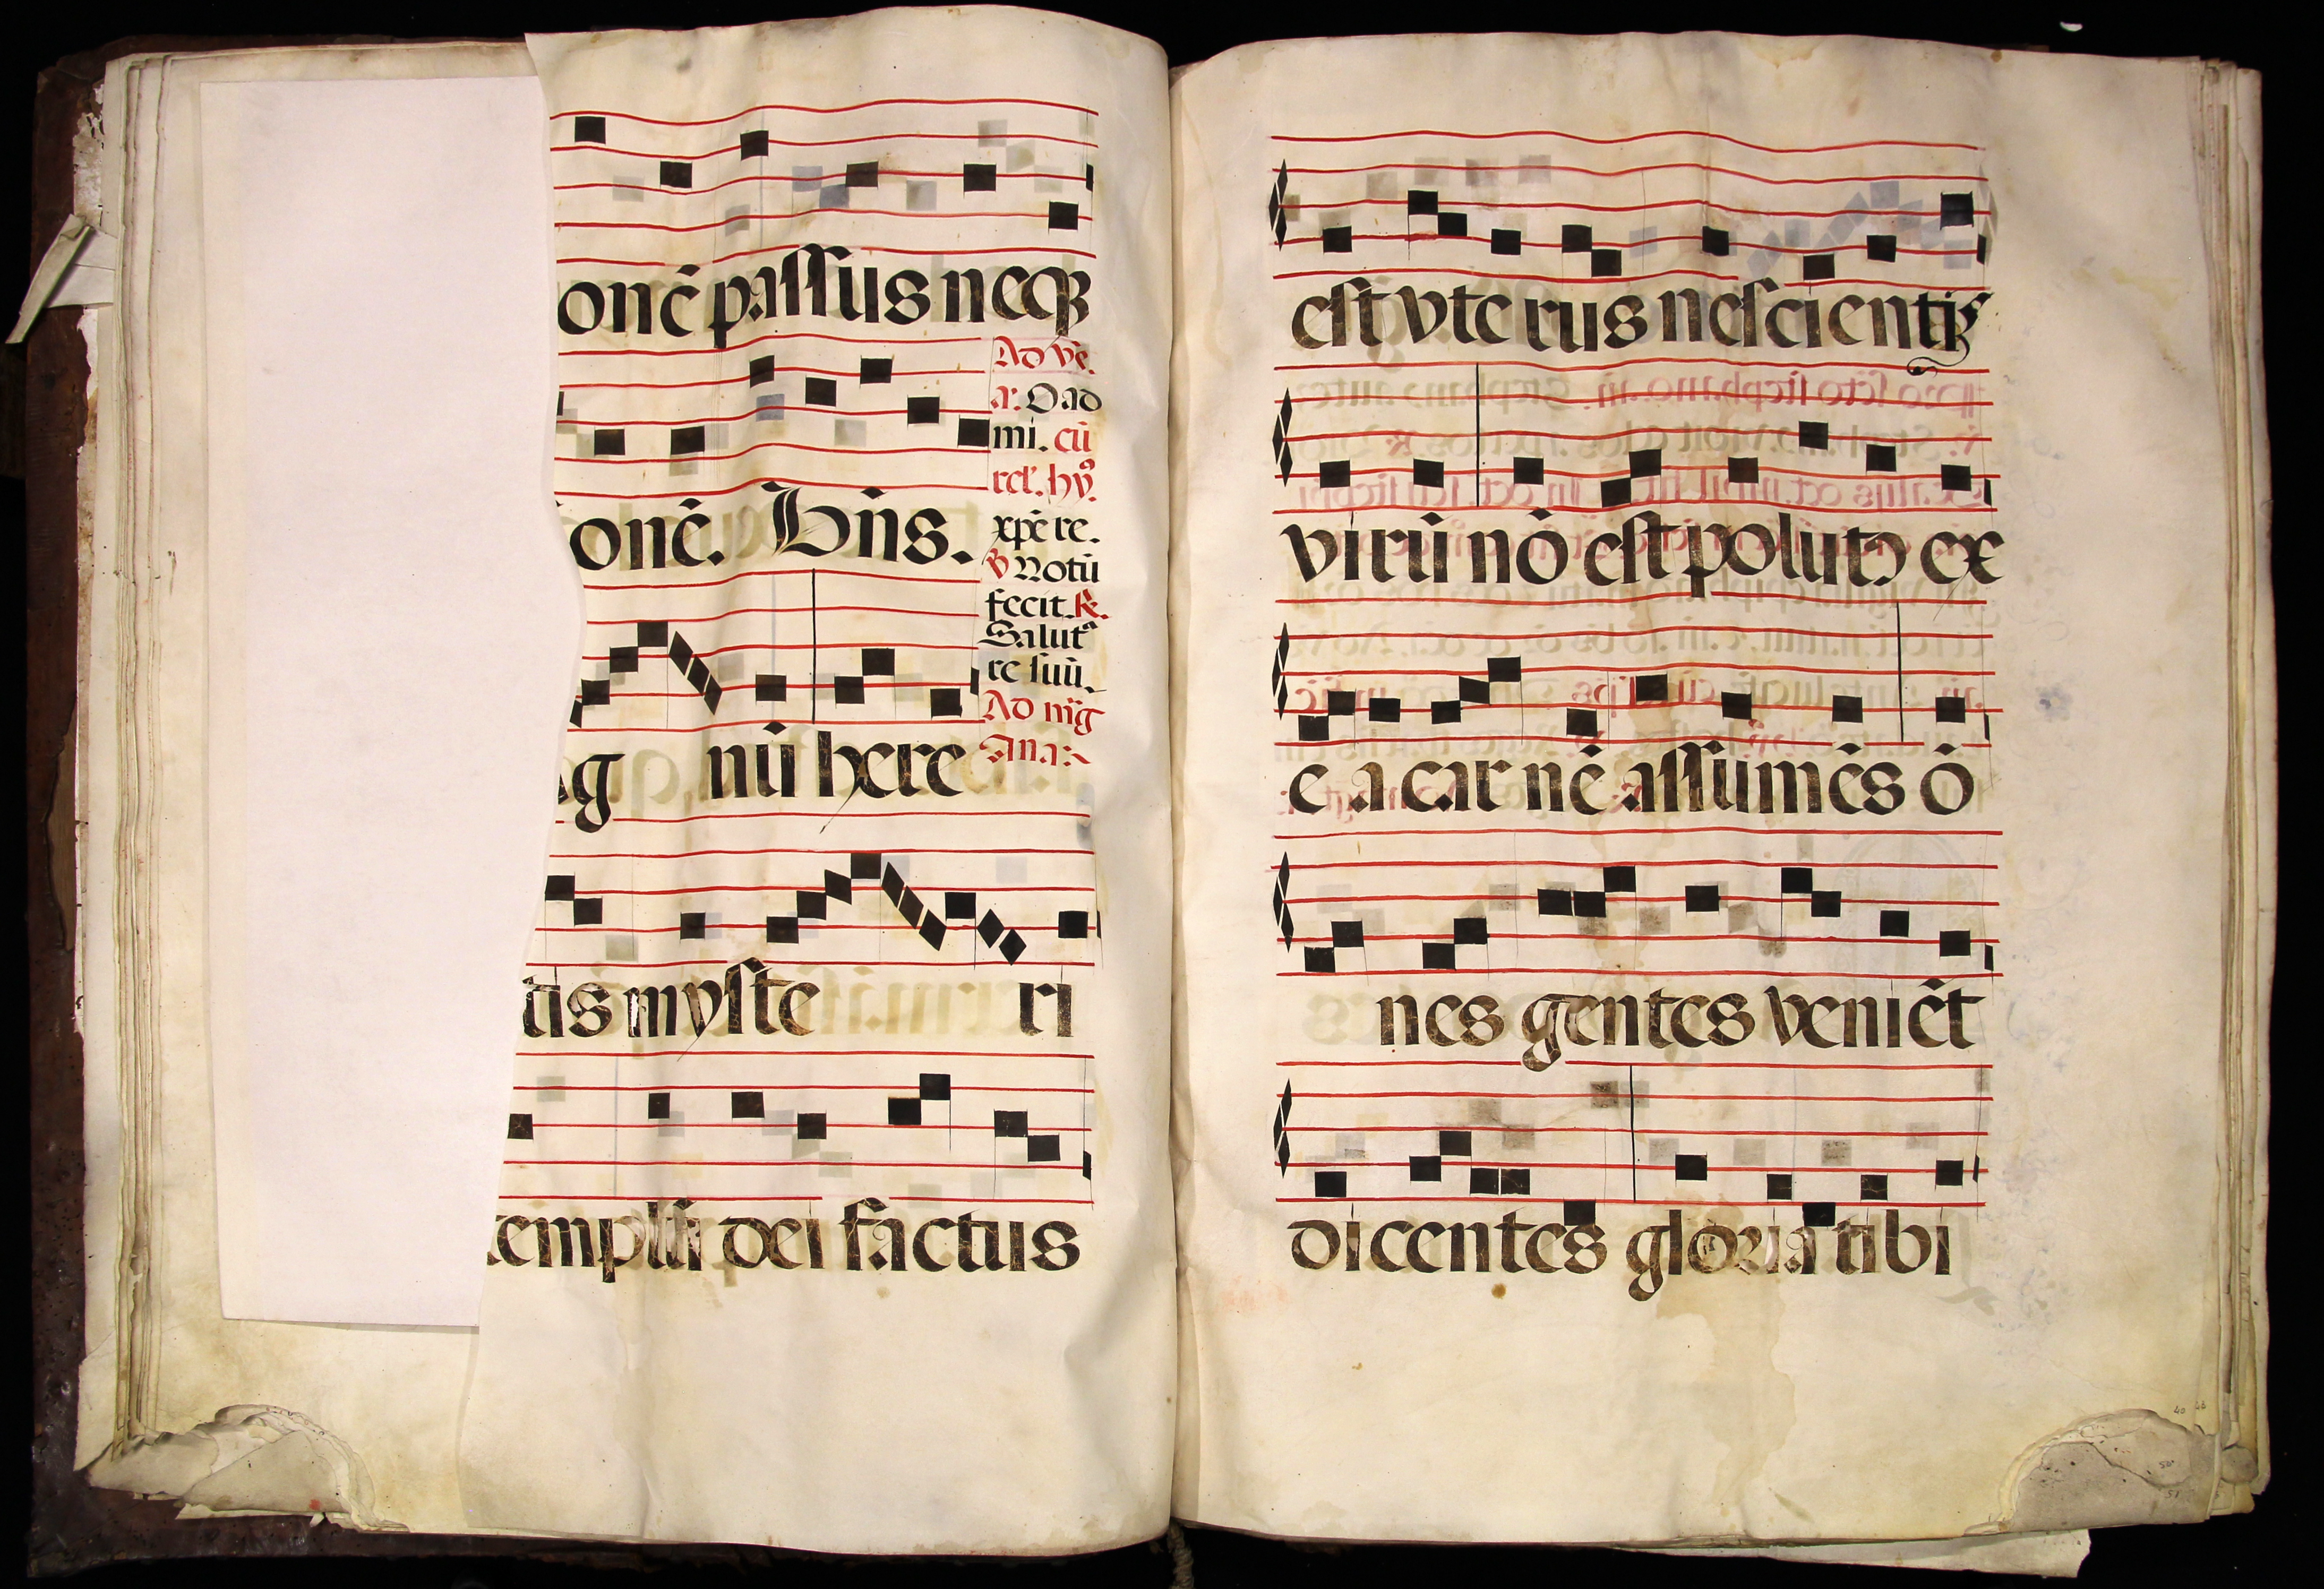 onē passus neqꝫ
Ad vē.
a. O ad
mi. cū
rel'. hyꝰ.
onē. Dn̄s.
xpē re.
℣ Notū
fecit. ℟.
Salutᵃ
re suū.
g nū here
Ad m̄g
Ana.
tis myste ri
templū dei factus
est vterus nescientis
virū nō est pollutꝰ ex
ea carnē assumēs ō
nes gentes veniēt
dicentes gloria tibi